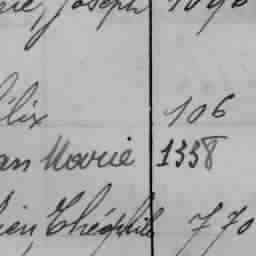 Joseph 1090
élix 106
an Marie 1338
ien, Théophile 770